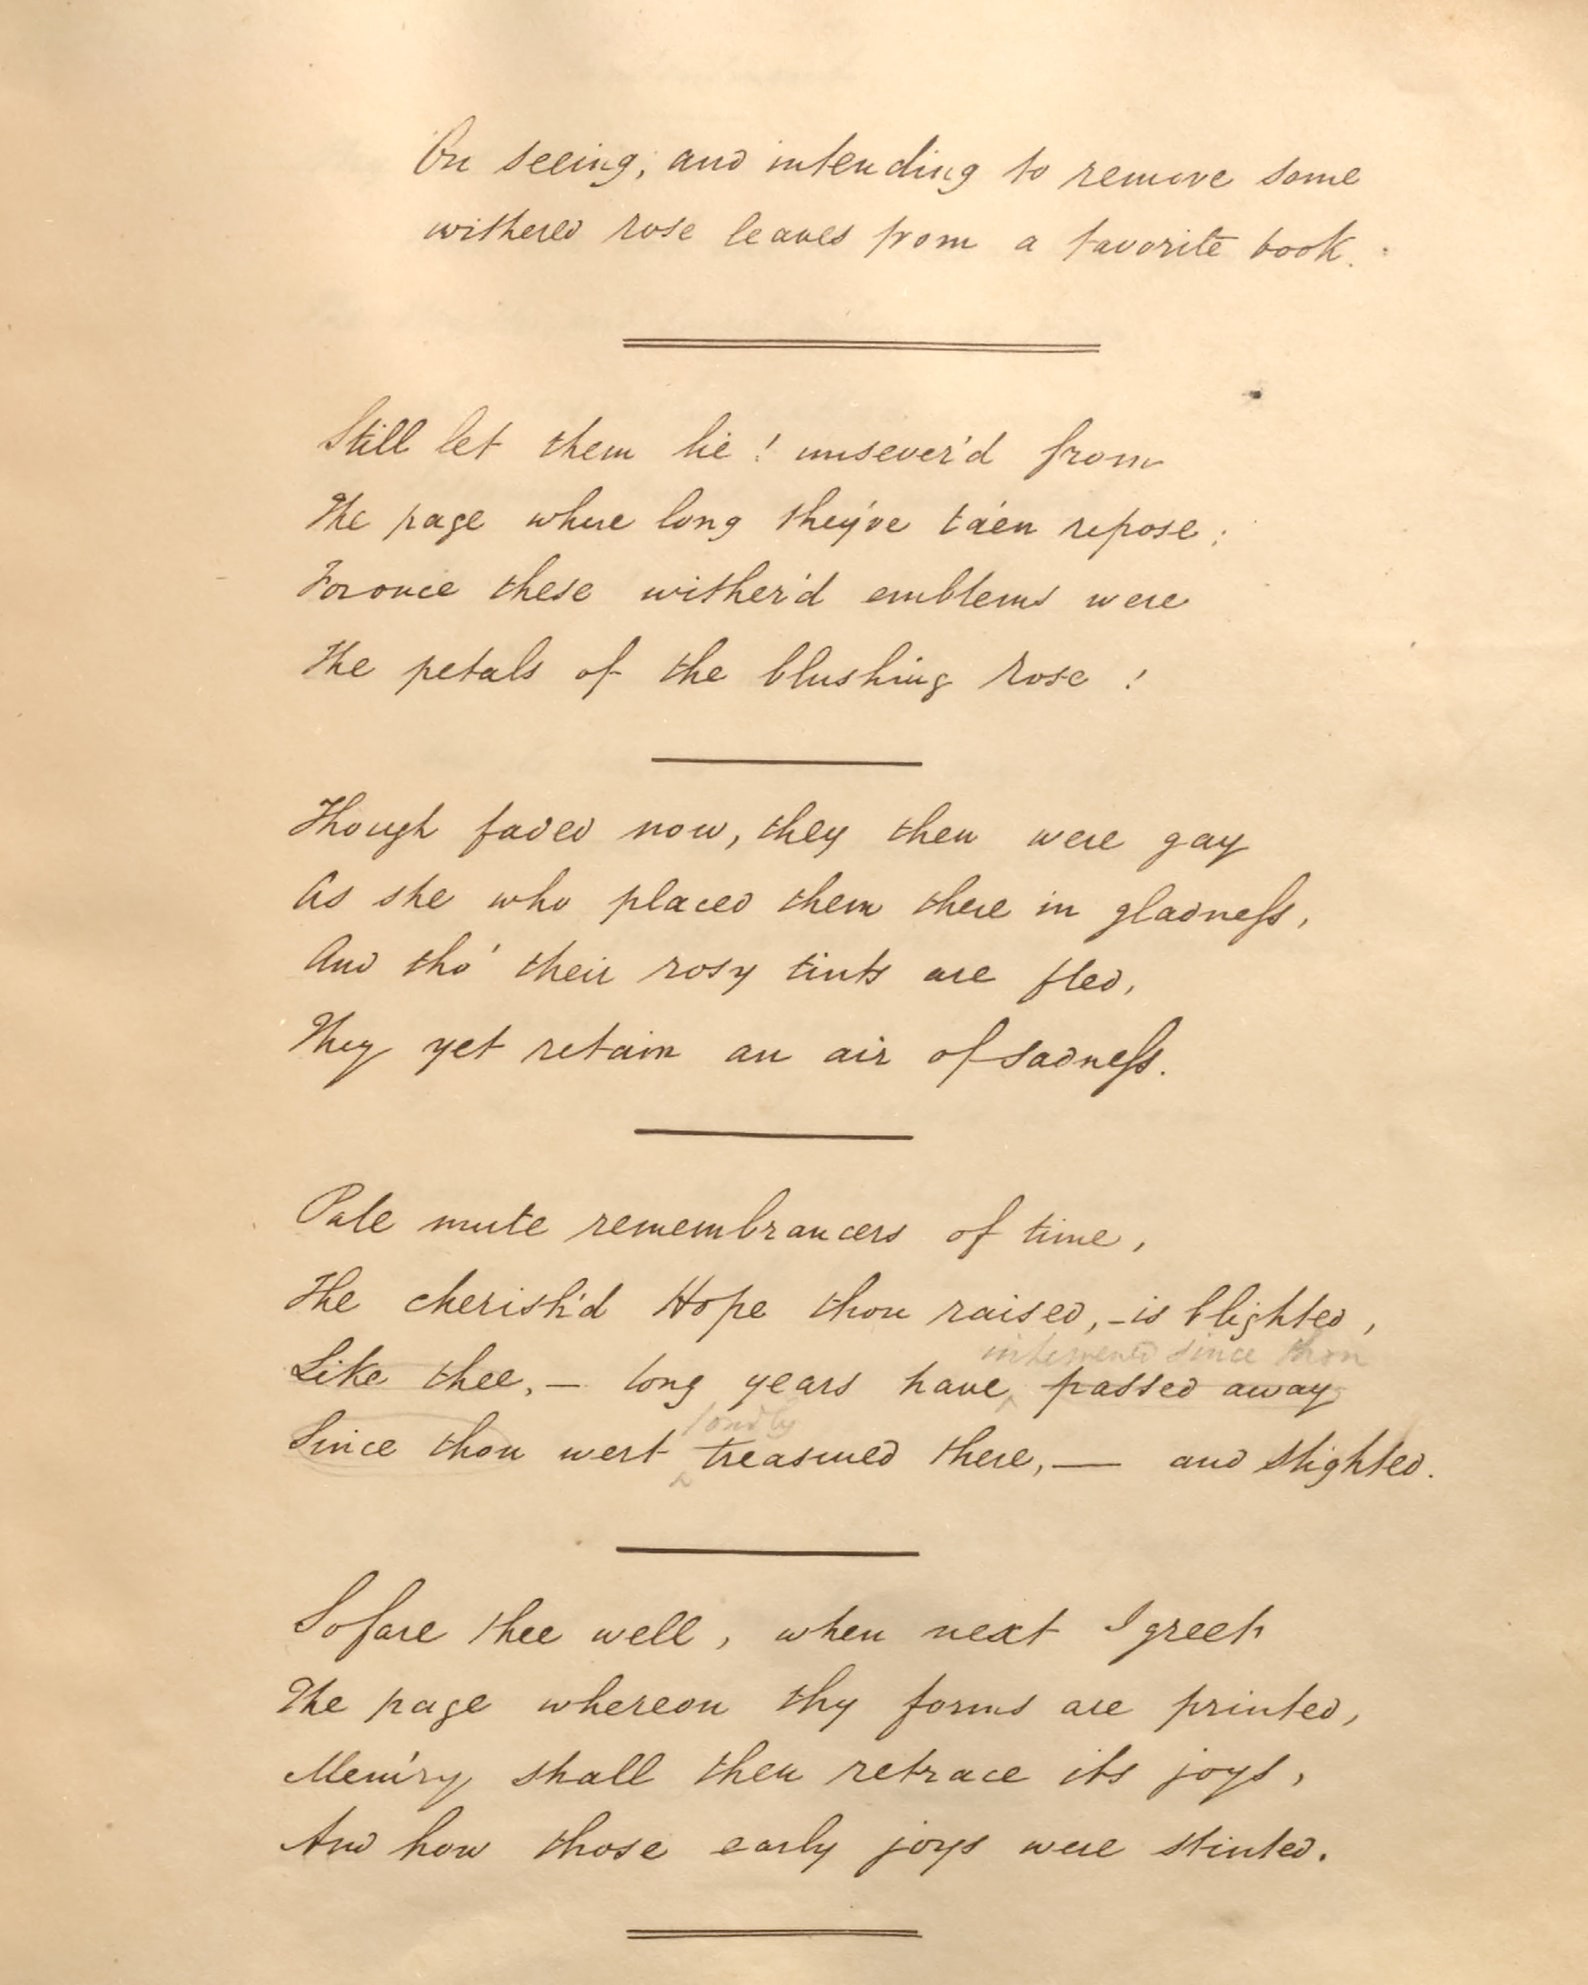 On seeing, and intending to remove some
withered rose leaves from a favorite book.
Still let them lie! unsever'd from
The page where long they've ta'en repose;
For once these wither'd emblems were
The petals of the blushing rose!
Though faded now, they then were gay
As she who placed them there in gladness,
And tho' their rosy tints are fled,
They yet retain an air of sadness.
Pale mute remembrancers of time,
The cherish'd Hope thou raised, – is blighted,
intervened since thou
Like thee, – long years have ^ passed away
fondly
Since thou wert ^ treasured there, — and slighted.
So fare thee well, when next I greet
The page whereon thy forms are printed,
Mem'ry shall then retrace its joys,
And how those early joys were stinted.